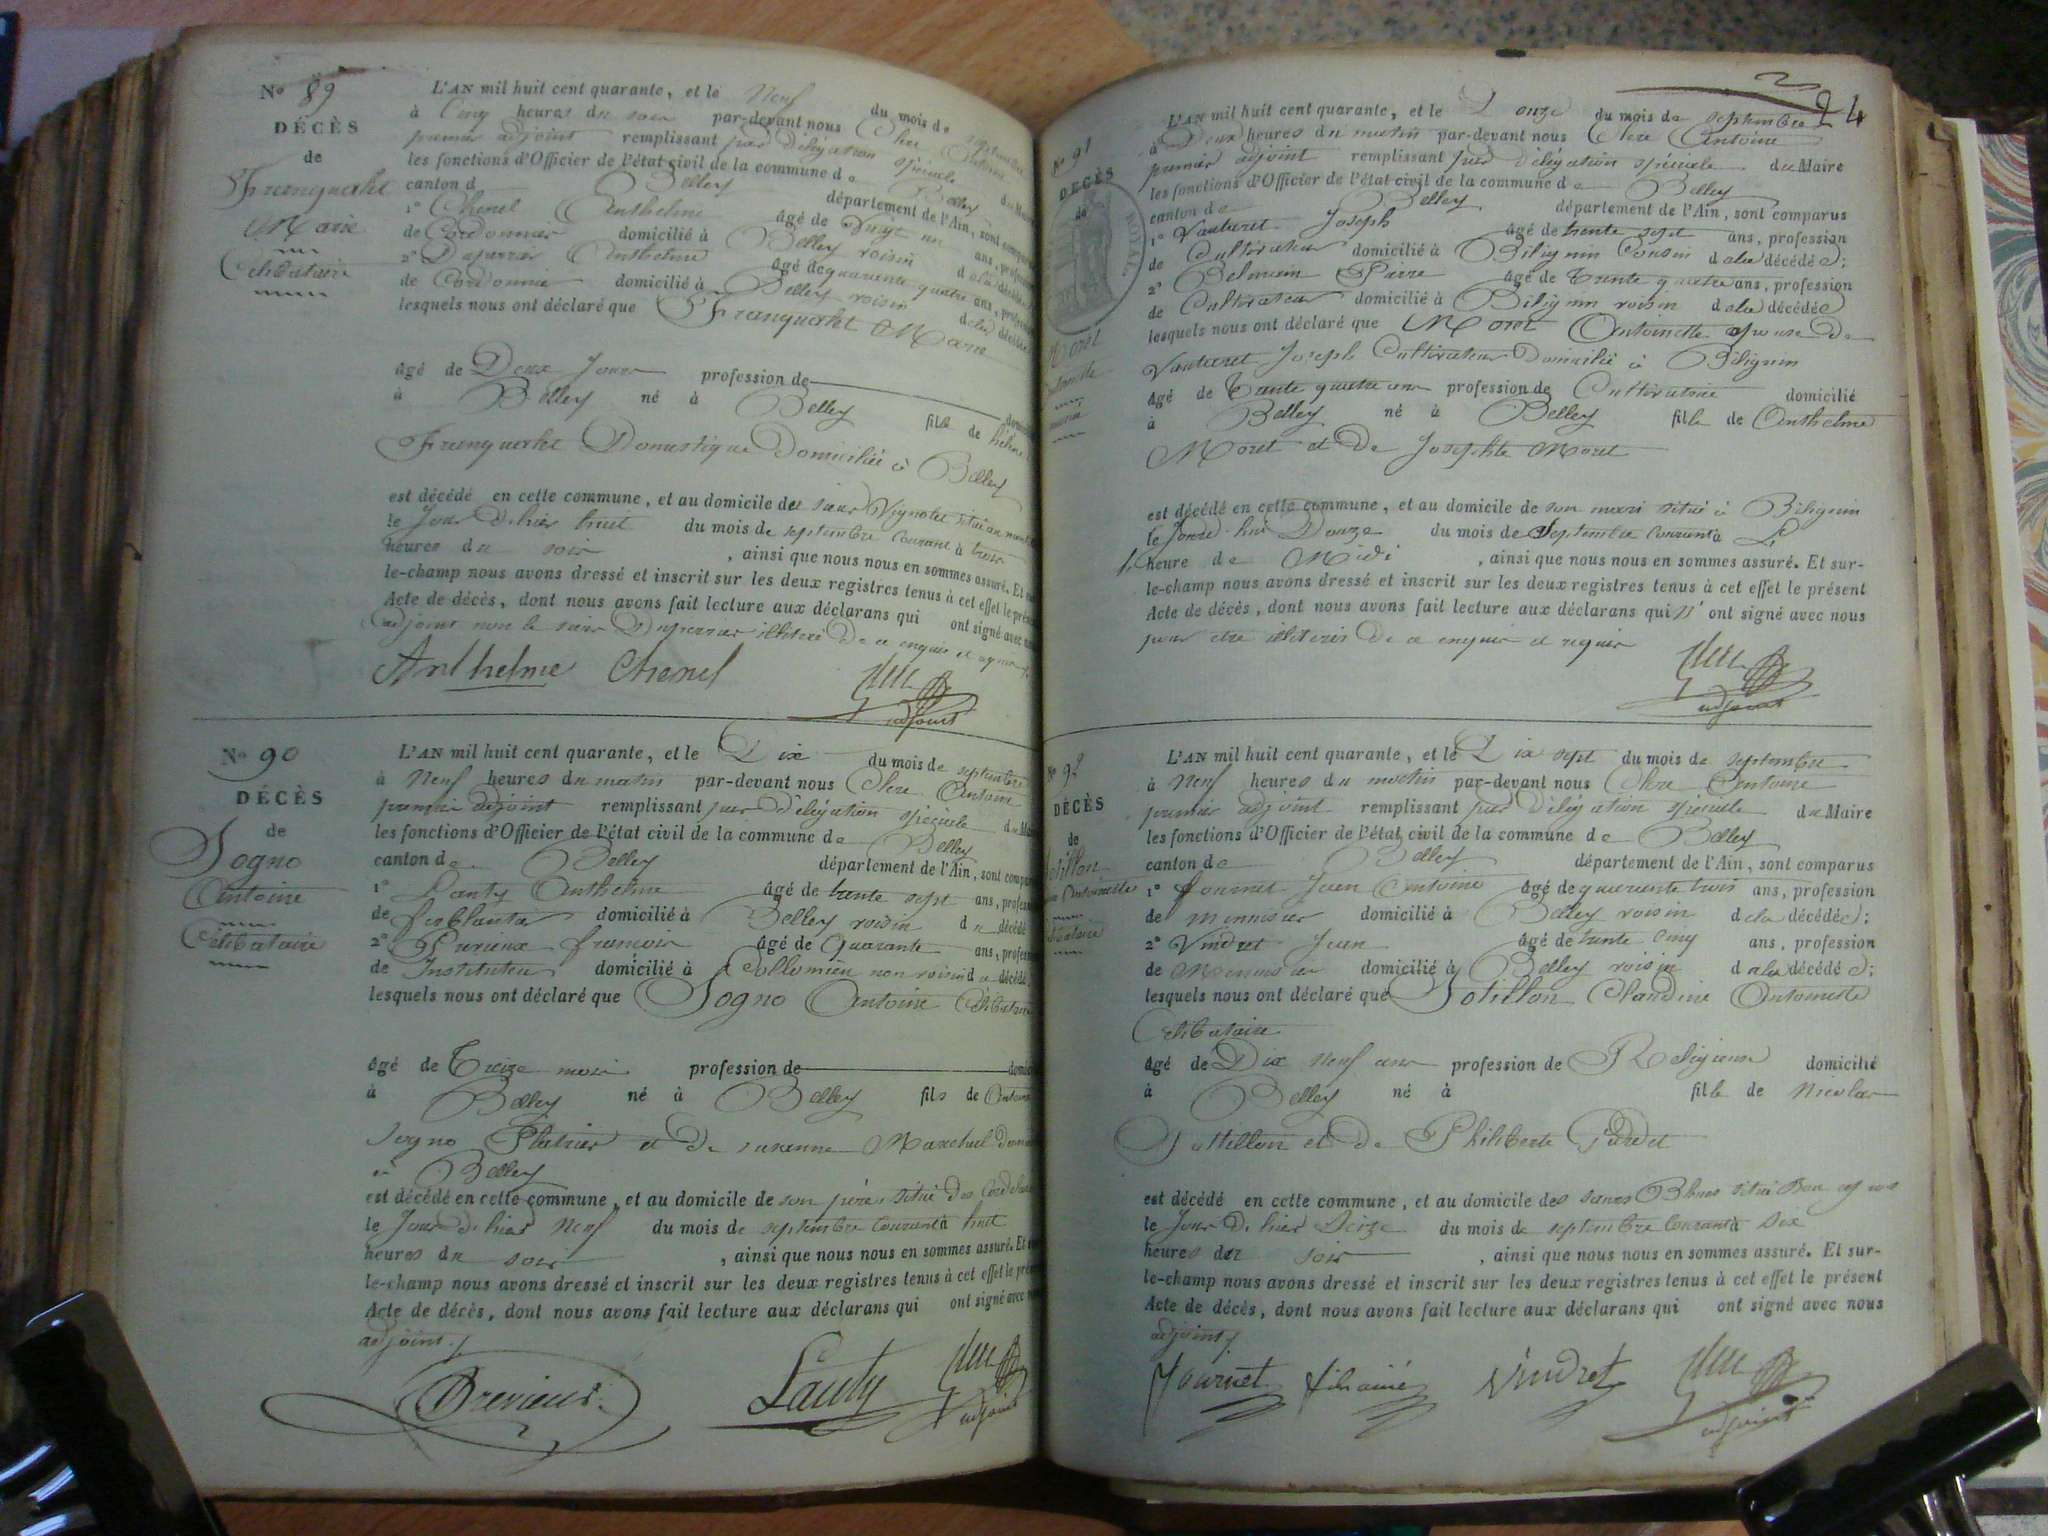 No 89
DÉCÈS
de
Franquelet
Marie
Célibataire
L'AN mil huit cent quarante, et le Neuf du mois de septembre
à Cinq heures du soir par-devant nous Clerc Antoine
premier adjoint remplissant par Délégation spéciale du Maire
les fonctions d'Officier de l'état civil de la commune de Belley
canton de Belley département de l'Ain, sont comparus
1° Chenel Anthelme âgé de Vingt un ans, profession
de Cordonnier domicilié à Belley voisin de la décédée
2° Duperrier Anthelme âgé de quarante quatre ans, profession
de Cordonnier domicilié à Belley voisin de la décédée
lesquels nous ont déclaré que Franquelet Marie
âgé de Deux Jours profession de
à Belley né à Belley fille de hélène
Franquelet Domestique Domiciliée à Belley
est décédé en cette commune, et au domicile de
le Jour d'hier huit du mois de septembre courant à trois
heures du soir, ainsi que nous nous en sommes assuré. Et sur-
le-champ nous avons dressé et inscrit sur les deux registres tenus à cet effet le présent
Acte de décès, dont nous avons fait lecture aux déclarans qui ont signé avec nous
adjoint non le sieur Duperrier illitéré De ce enquis et requis
Anthelme Chenel
adjoint
No 90
DÉCÈS
de
Sogno
Antoine
Célibataire
L'AN mil huit cent quarante, et le Dix du mois de septembre
à Neuf heures du matin par-devant nous Clerc Antoine
premier adjoint remplissant par Délégation spéciale du Maire
les fonctions d'Officier de l'état civil de la commune de Belley
canton de Belley département de l'Ain, sont comparus
1° Lauty Anthelme âgé de trente sept ans, profession
de ferblantier domicilié à Belley voisin du décédé
2° Prerieux françois âgé de Quarante ans, profession
de Instituteur domicilié à Collomieu non voisin du décédé
lesquels nous ont déclaré que Sogno Antoine Célibataire
âgé de Treize mois profession de
à Belley né à Belley fils de Antoine
Sogno Platrier et de suzanne Marechal
à Belley
est décédé en cette commune, et au domicile de son père situé des Cordeliers
le Jour d'hier Neuf du mois de septembre courant à huit
heures du soir, ainsi que nous nous en sommes assuré. Et
le-champ nous avons dressé et inscrit sur les deux registres tenus à cet effet le présent
Acte de décès, dont nous avons fait lecture aux déclarans qui ont signé avec nous
adjoint
Prerieux Lauty
adjoint
24
No 91
DÉCÈS
de
ROYAL
Moret
mariée
L'AN mil huit cent quarante, et le Douze du mois de septembre
à Deux heures du matin par-devant nous Clerc Antoine
premier adjoint remplissant par délégation spéciale du Maire
les fonctions d'Officier de l'état civil de la commune de Belley
canton de Belley département de l'Ain, sont comparus
1° Vauteret Joseph âgé de trente sept ans, profession
de Cultivateur domicilié à Billignin Cousin de la décédée;
2° Belmain Pierre âgé de Trente quatre ans, profession
de Cultivateur domicilié à Billignin voisin de la décédée
lesquels nous ont déclaré que Moret Antoinette épouse de
Vauteret Joseph Cultivateur Domicilié à Billignin
âgé de Trente quatre ans profession de Cultivatrice domicilié
à Belley né à Belley fille de Anthelme
Moret et de Josephte Moret
est décédé en cette commune, et au domicile de son mari situé à Billignin
le Jourd'hui Douze du mois de septembre courant à
heure de Midi, ainsi que nous nous en sommes assuré. Et sur-
le-champ nous avons dressé et inscrit sur les deux registres tenus à cet effet le présent
Acte de décès, dont nous avons fait lecture aux déclarans qui n'ont signé avec nous
pour être illiterés De ce enquis et requis
adjoint
No 92
DÉCÈS
de
L'AN mil huit cent quarante, et le Dix sept du mois de septembre
à Neuf heures du matin par-devant nous Clerc Antoine
premier adjoint remplissant par Délégation spéciale du Maire
les fonctions d'Officier de l'état civil de la commune de Belley
canton de Belley département de l'Ain, sont comparus
1° Journet Jean Antoine âgé de quarante trois ans, profession
de Menuisier domicilié à Belley voisin de la décédée;
2° Vindret Jean âgé de trente Cinq ans, profession
de Menuisier domicilié à Belley voisin de la décédée;
lesquels nous ont déclaré que Sotillon Claudine Antoinette
Célibataire
âgé de Dix Neuf ans profession de Religieuse domicilié
à Belley né à fille de Nicolas
Sottillon et de Philiberte Pardet
est décédé en cette commune, et au domicile des sœurs Bleues situé
le Jour d'hier Seize du mois de septembre Courant à Six
heures du soir, ainsi que nous nous en sommes assuré. Et sur-
le-champ nous avons dressé et inscrit sur les deux registres tenus à cet effet le présent
Acte de décès, dont nous avons fait lecture aux déclarans qui ont signé avec nous
adjoint
Journet Vindret
adjoint